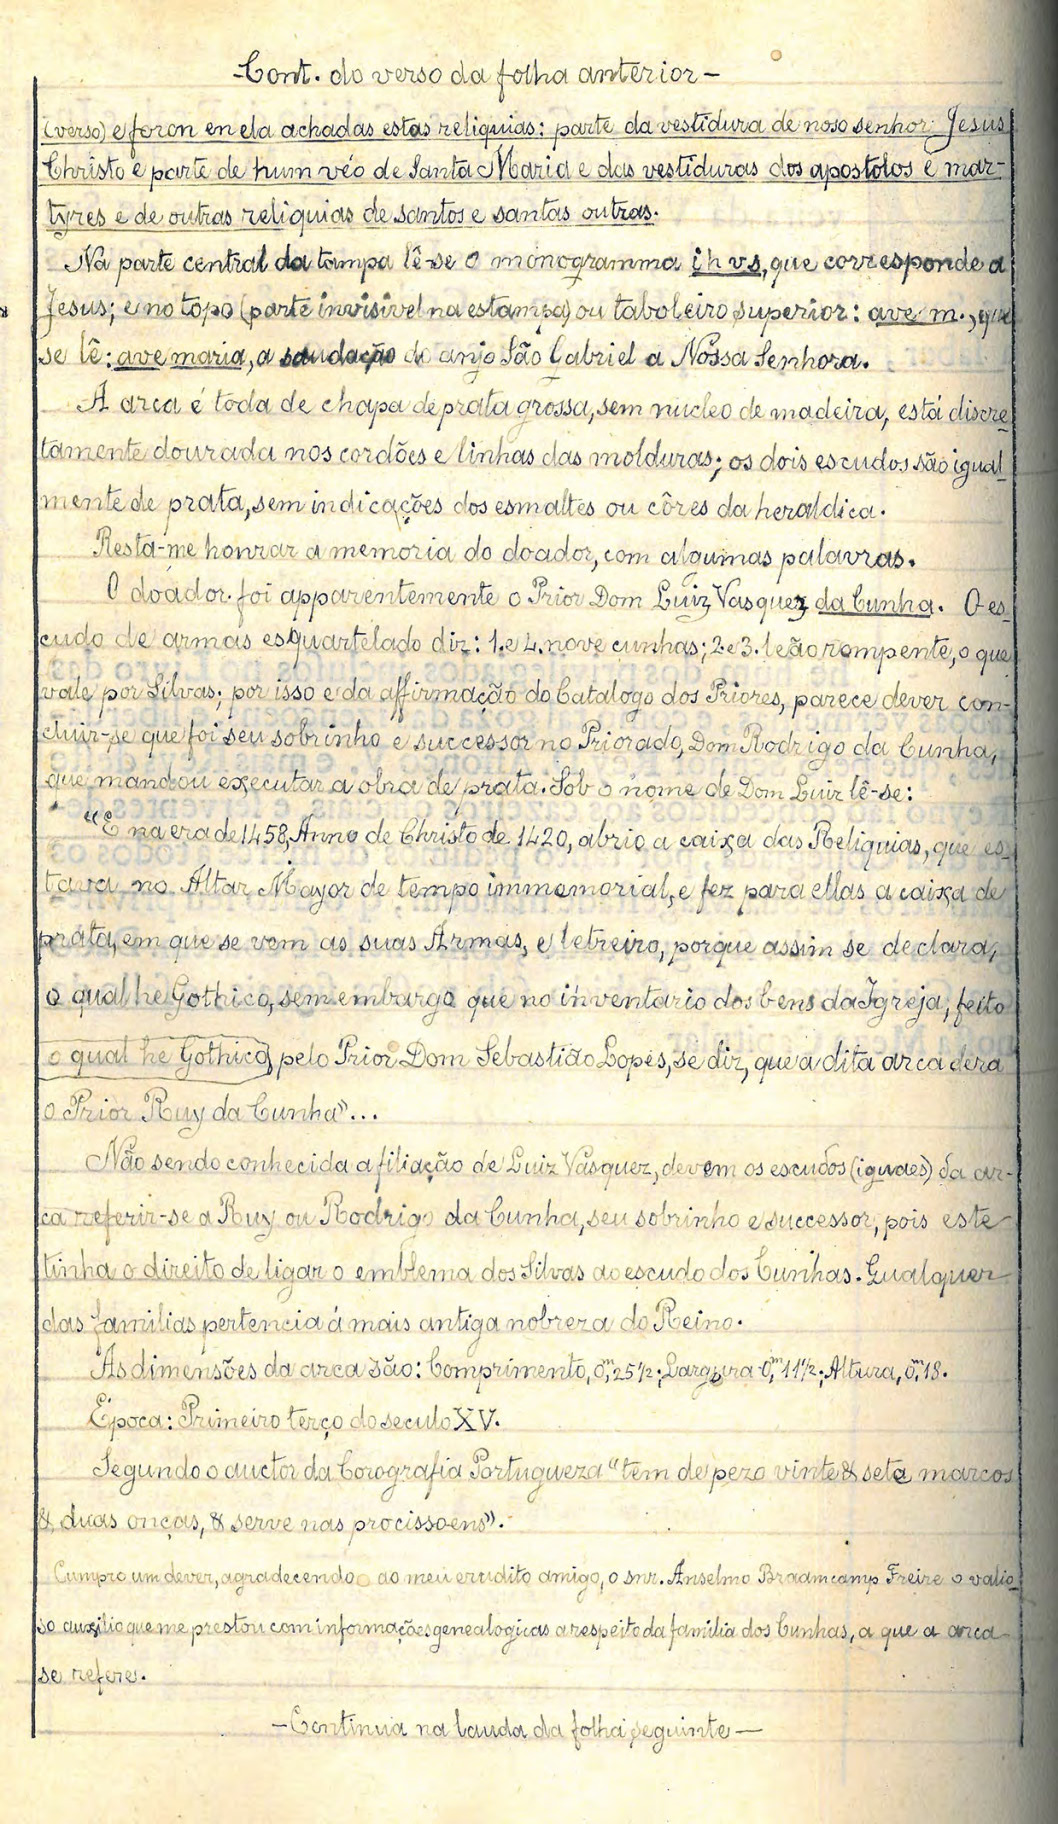 -Cont. do verso da folha anterior-
(verso) e foron en ela achadas estas reliquias: parte da vestidura de noso senhor Jesus
Christo e parte de hum véo de Santa Maria e das vestiduras dos apostolos e mar-
tyres e de outras reliquias de santos e santas outras.
Na parte central da tampa lê-se o monogramma ihvs, que corresponde a
Jesus; e no topo (parte invisivel na estampa) ou taboleiro superior: ave m., que
se lê: ave maria, a saudação do anjo São Gabriel a Nossa Senhora.
A arca é toda de chapa de prata grossa, sem nucleo de madeira, está discre-
tamente dourada nos cordões e linhas das molduras; os dois escudos são igual-
mente de prata, sem indicações dos esmaltes ou côres da heraldica.
Resta-me honrar a memoria do doador, com algumas palavras.
O doador foi apparentemente o Prior Dom Luiz Vasquez da Cunha. O es-
cudo de armas esquartelado diz: 1. e 4. nove cunhas; 2. e 3. leão rompente, o que
vale por Silvas; por isso e da affirmação do Catalogo dos Priores, parece dever con-
cluir-se que foi seu sobrinho e successor no Priorado, Dom Rodrigo da Cunha,
que mandou executar a obra de prata. Sob o nome de Dom Luiz lê-se:
"E na era de 1458, Anno de Christo de 1420, abrio a caixa das Reliquias, que es-
tava no Altar Mayor de tempo immemorial, e fez para ellas a caixa de
prata, em que se vem as suas Armas, e letreiro, porque assim se declara,
o qual he Gothico, sem embargo que no inventario dos bens da Igreja, feito
o qual he Gothico, pelo Prior Dom Sebastião Lopes, se diz, que a dita arca dera
o Prior Ruy da Cunha"...
Não sendo conhecida a filiação de Luiz Vasquez, devem os escudos (iguaes) da ar-
ca referir-se a Ruy ou Rodrigo da Cunha, seu sobrinho e successor, pois este
tinha o direito de ligar o emblema dos Silvas ao escudo dos Cunhas. Qualquer
das familias pertencia á mais antiga nobreza do Reino.
As dimensões da arca são: Comprimento, 0,m25½; Largura 0,m11½; Altura, 0,m18.
Época: Primeiro terço do seculo XV.
Segundo o auctor da Corografia Portugueza "tem de pezo vinte & sete marcos
& duas onças, & serve nas procissoens".
Cumpro um dever, agradecendo ao meu erudito amigo, o snr. Anselmo Braamcamp Freire o valio-
so auxilio que me prestou com informações genealogicas a respeito da familia dos Cunhas, a que a arca
se refere.
-Continua na lauda da folha seguinte-